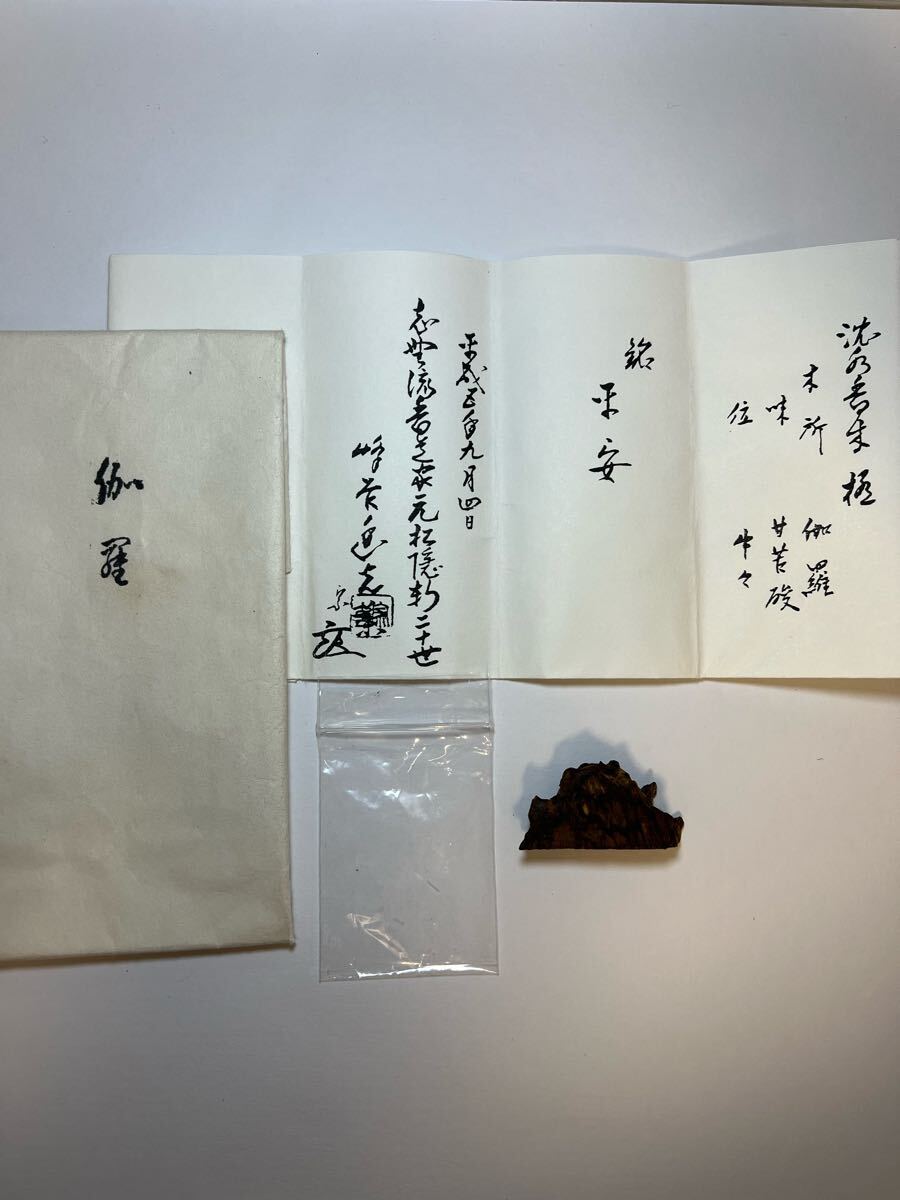 沈水香木 極
木所 伽羅
味 甘苦酸
位 中々
銘 平安
平成五年九月四日
志野流香道家元松隠軒二十世
蜂谷幽光
宗
伽羅